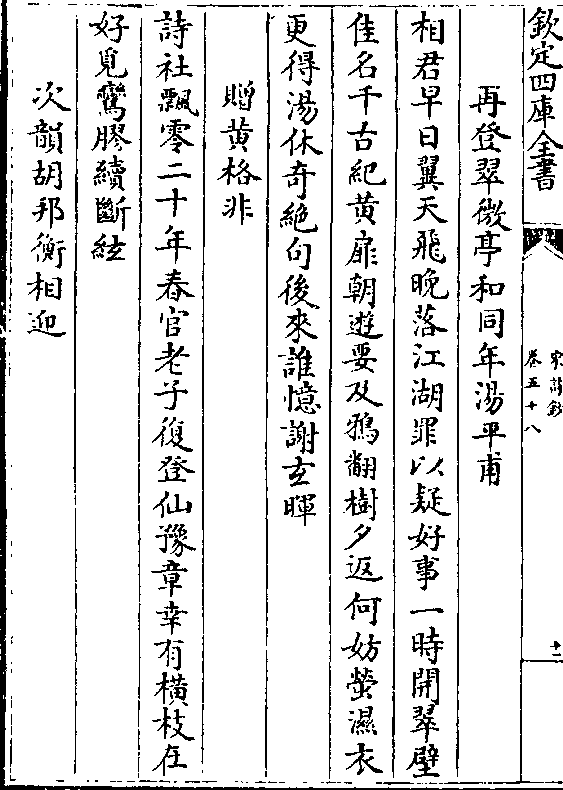 欽定四庫全書
宋詩鈔
卷五十八
十二
再登翠微亭和同年湯平甫
相君早日翼天飛晚落江湖罪以疑好事一時開翠壁
佳名千古紀黄扉朝遊要及鴉翻樹夕返何妨螢濕衣
更得湯休奇絶句後來誰憶謝玄暉
贈黄格非
詩社飄零二十年春官老子復登仙豫章幸有横枝在
好覓鸞膠續斷絃
次韻胡邦衡相迎